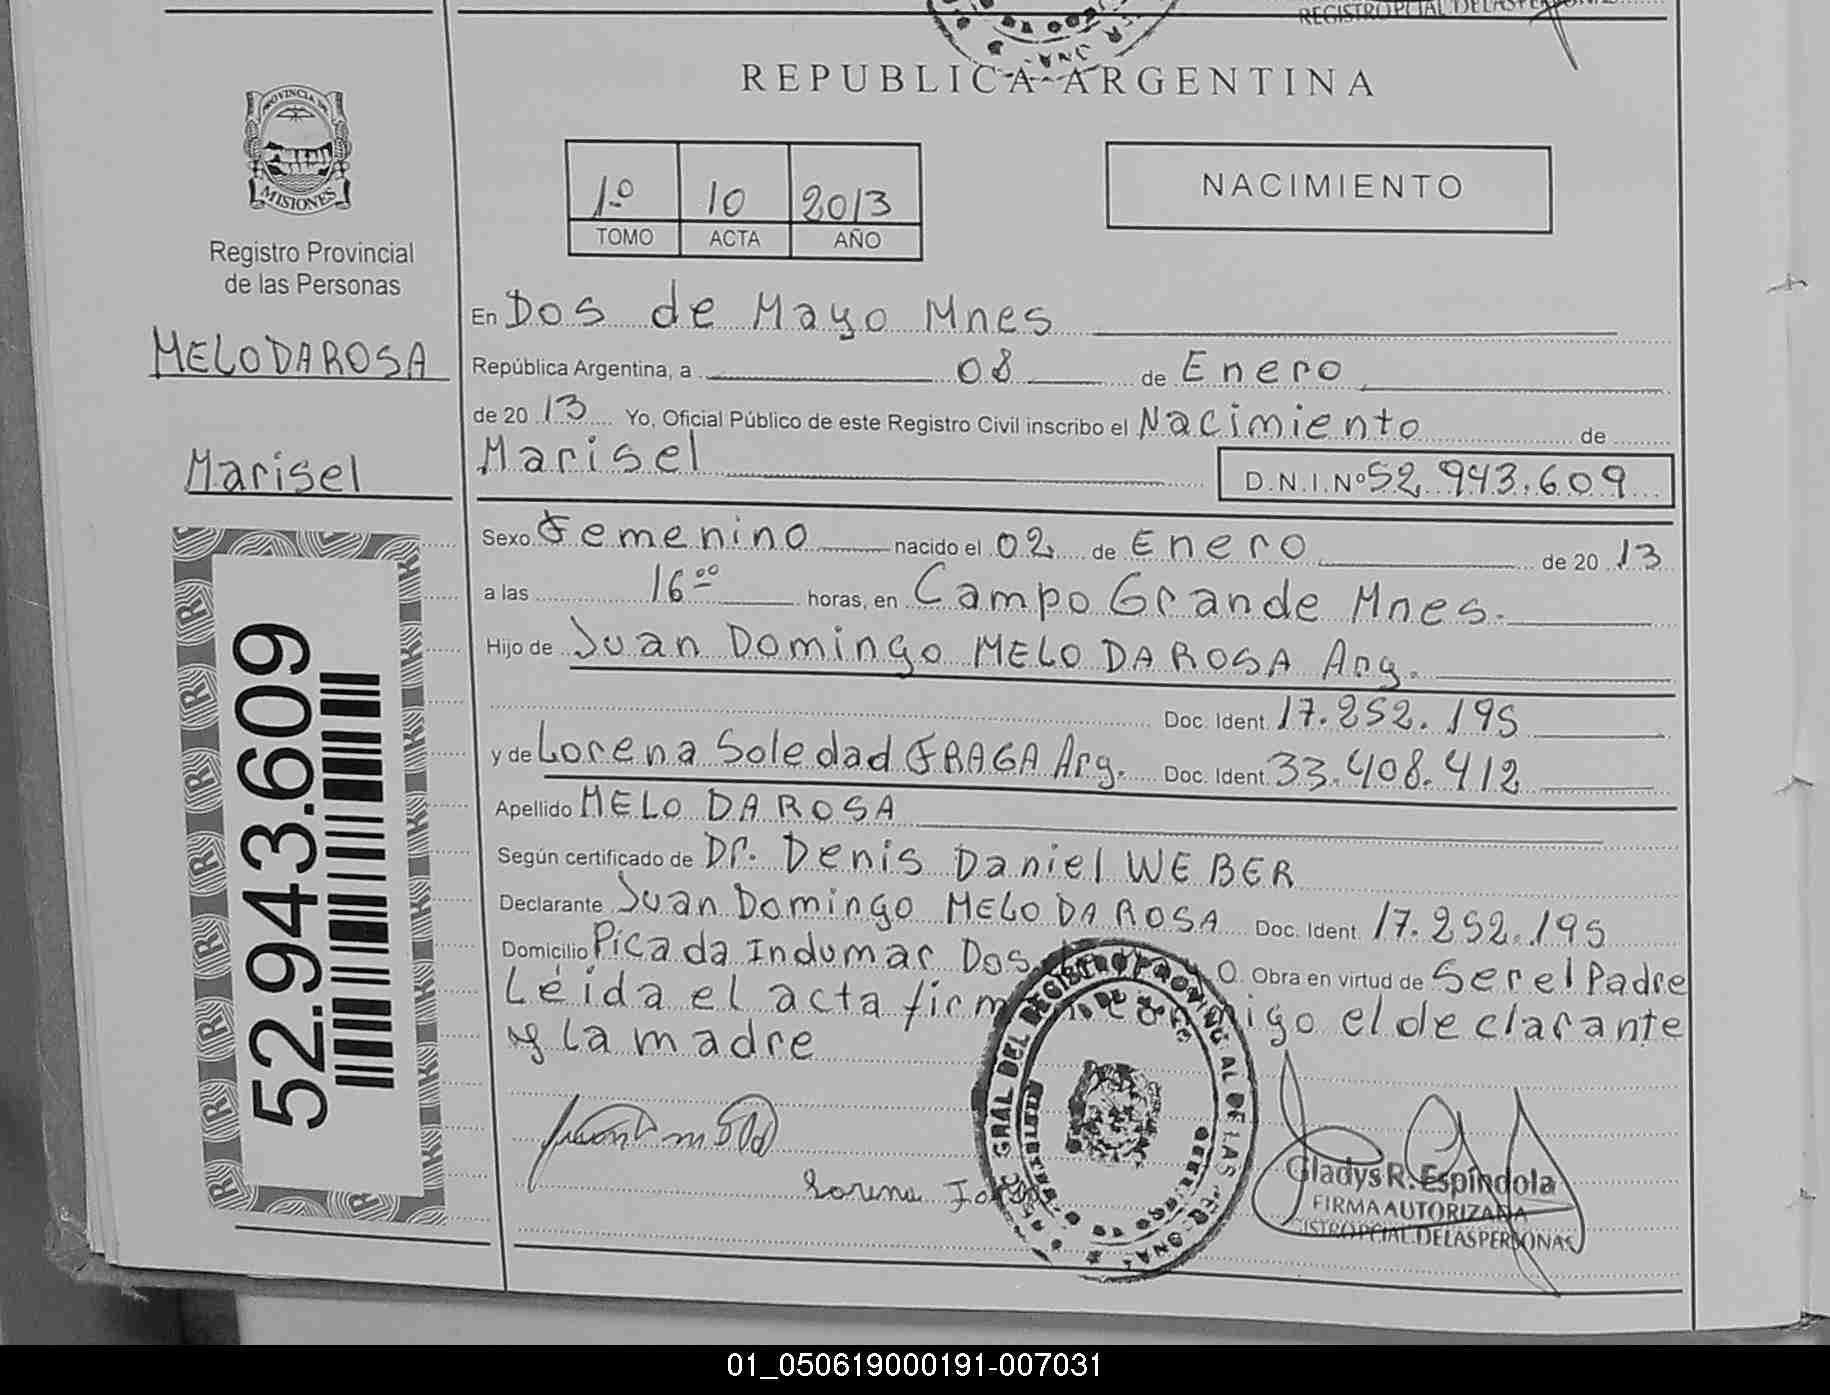 REGISTRO PCIAL DE LAS PERSONAS
REPUBLICA ARGENTINA
PROVINCIA DE
MISIONES
Registro Provincial
de las Personas
MELO DA ROSA
Marisel
52.943.609
1º 10 2013
TOMO ACTA AÑO
NACIMIENTO
En Dos de Mayo Mnes
República Argentina, a 08 de Enero
de 20 13 Yo, Oficial Público de este Registro Civil inscribo el Nacimiento de
Marisel D.N.I.Nº 52.943.609
Sexo Femenino nacido el 02 de Enero de 20 13
a las 16ºº horas, en Campo Grande Mnes.
Hijo de Juan Domingo MELO DA ROSA Arg.
Doc. Ident. 17.252.195
y de Lorena Soledad FRAGA Arg. Doc. Ident. 33.408.412
Apellido MELO DA ROSA
Según certificado de Dr. Denis Daniel WEBER
Declarante Juan Domingo MELO DA ROSA Doc. Ident. 17.252.195
Domicilio Picada Indumar Dos O. Obra en virtud de Ser el Padre
Leida el acta firm migo el declarante
y la madre
GRAL DEL REGISTRO PROVINCIAL DE LAS PERSONAS
Lorena
Gladys R. Espíndola
FIRMA AUTORIZADA
REGISTRO PCIAL DE LAS PERSONAS
01_050619000191-007031